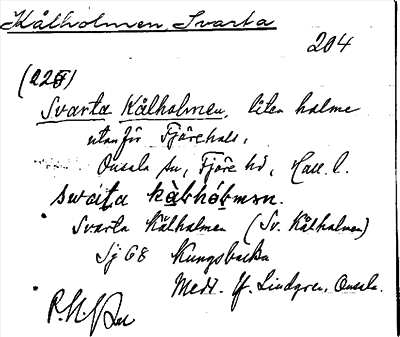 Kålholmen, Svarta
204
(228)
Svarta Kålholmen, liten holme
utanför Fjärehals,
Onsala sn, Fjäre hd, Hall. l.
swaṭa kàḷhóḷmən.
Svarta Kålholmen (Sv. Kålholmen)
Sj 68 Kungsbacka
Medd. Lindgren, Onsala.